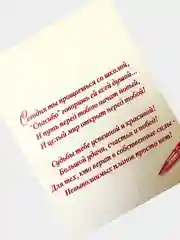 Сегодня ты прощаешься со школой,
"Спасибо" говоришь ей всей душой...
И путь перед тобою начат новый,
И целый мир открыт перед тобой!
Судьбы тебе успешной и красивой!
Большой удачи, счастья и побед!
Для тех, кто верит в собственные силы -
Невыполнимых планов просто нет!